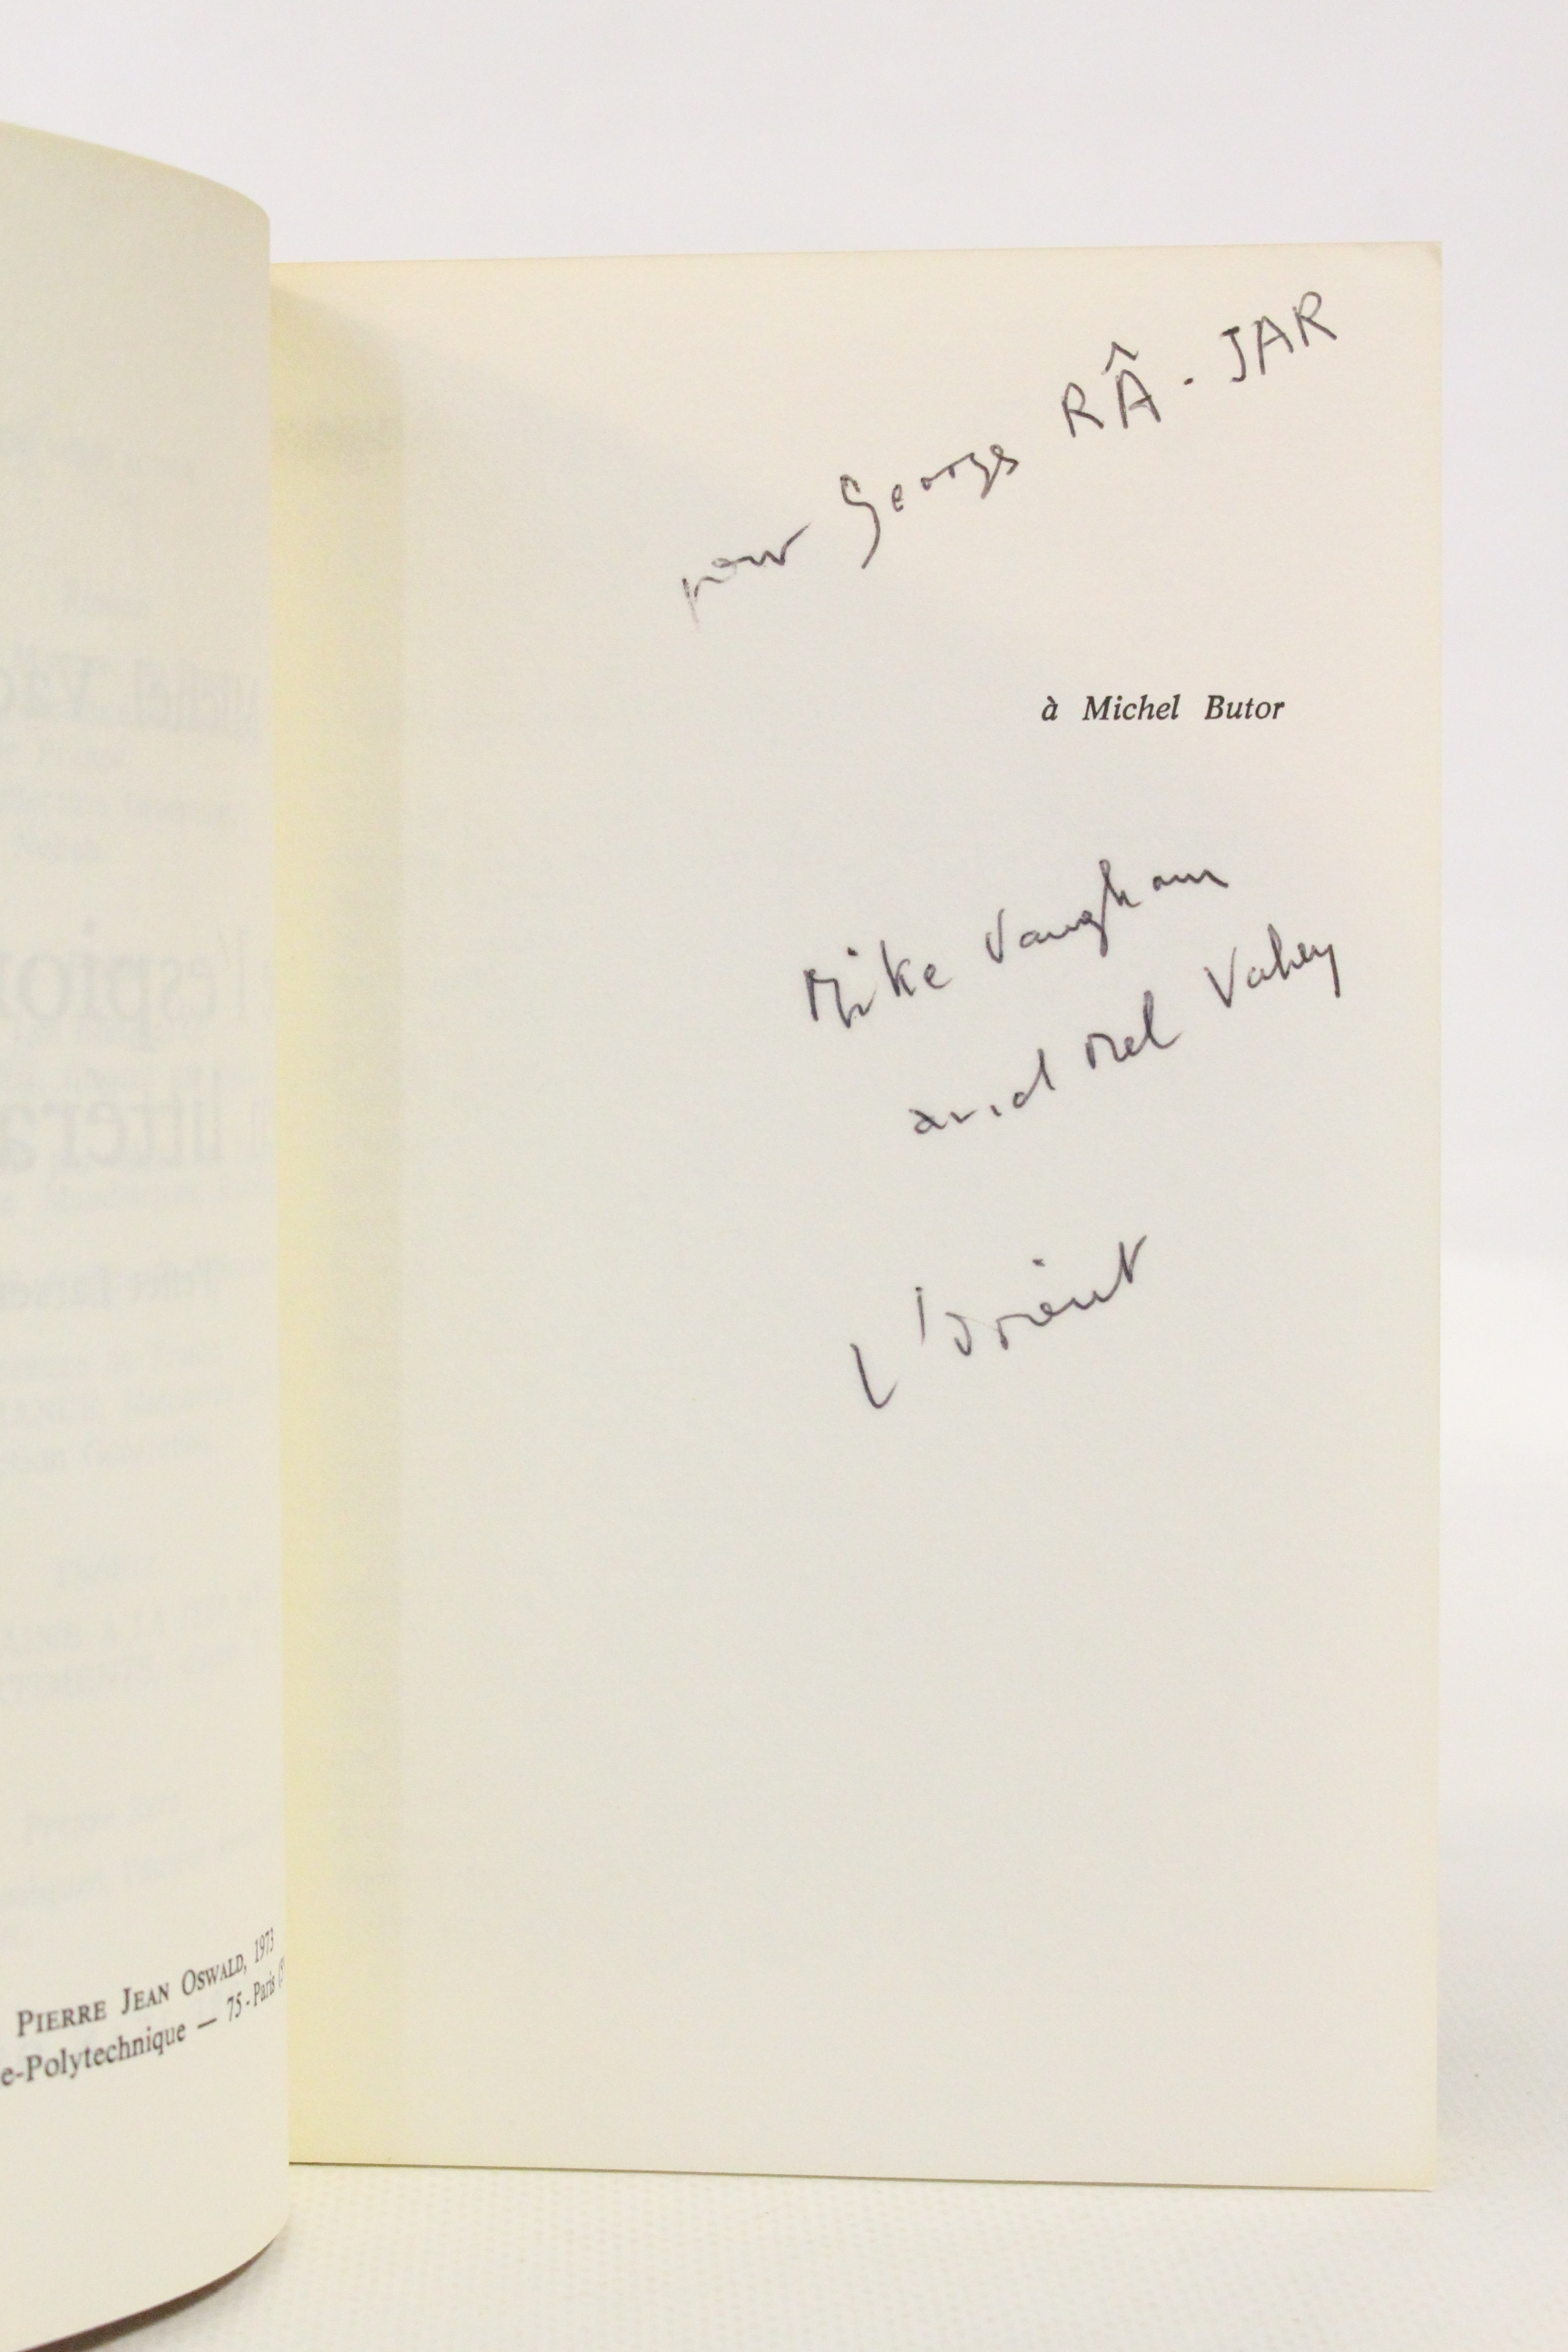 PIERRE JEAN OSWALD, 1973
e-Polytechnique — 75-Paris
pour Georges RÂ-JAR
à Michel Butor
Mike Vaughan
and Mel Vahey
L'orient